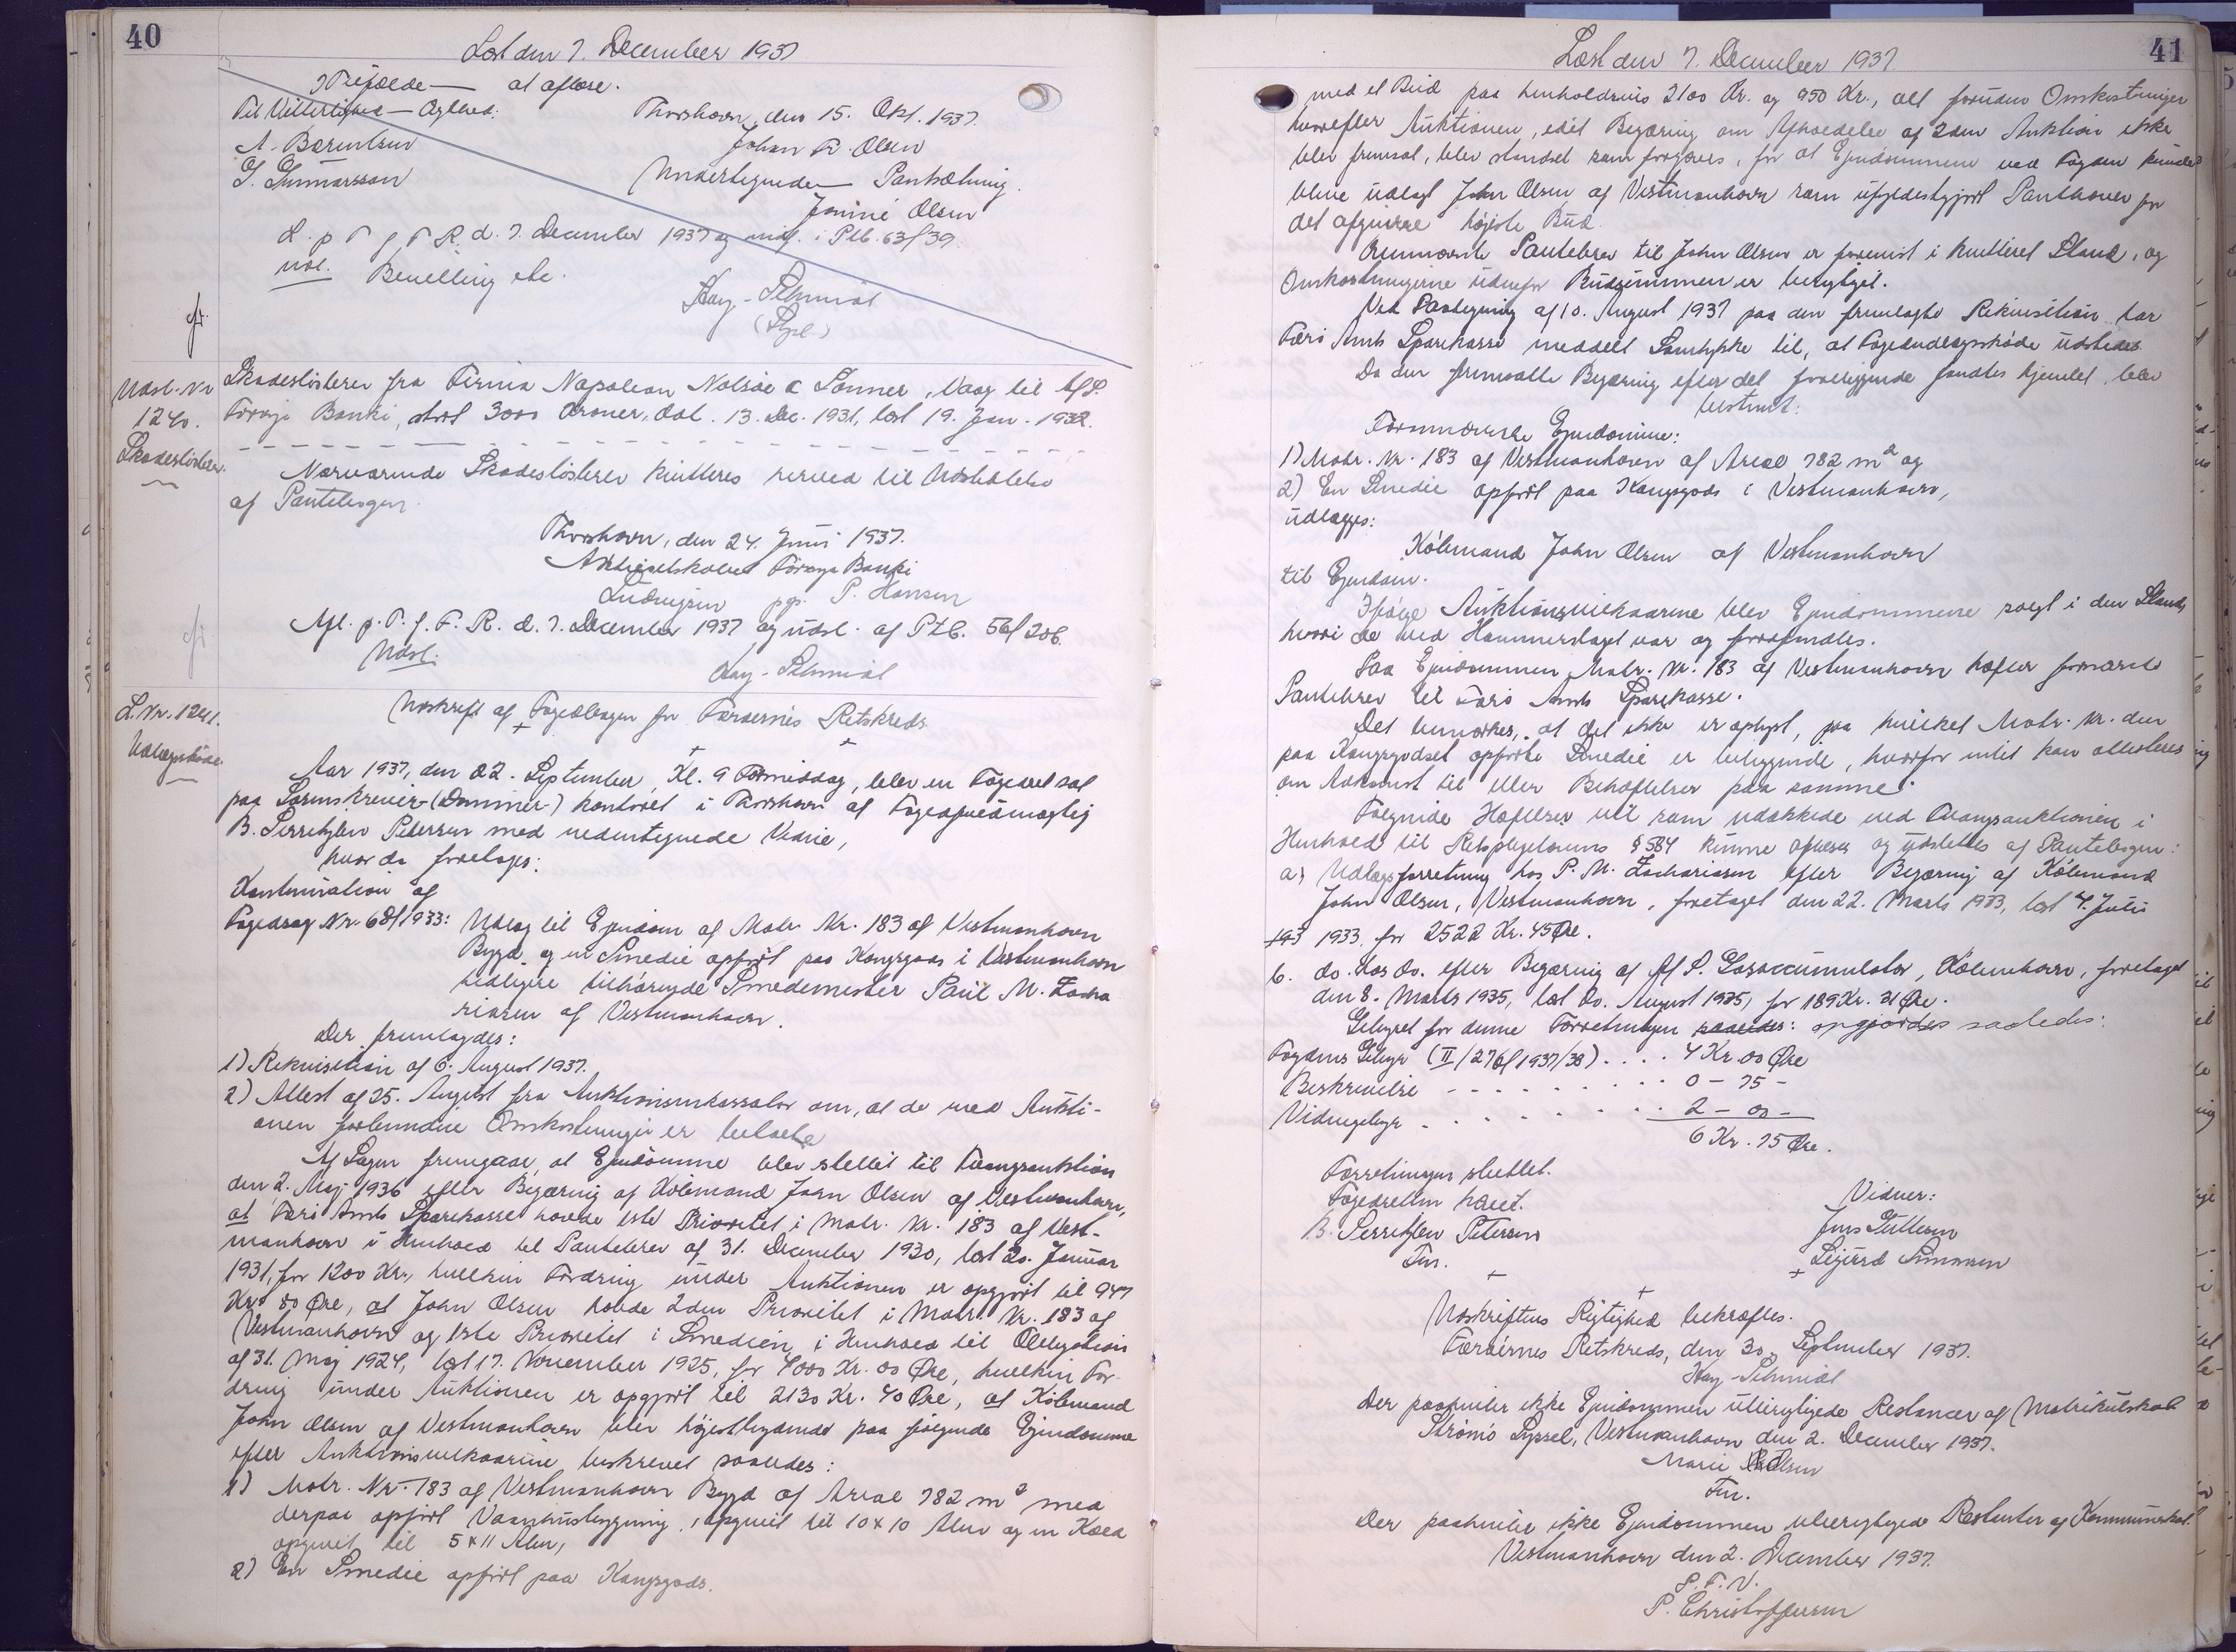 40
Læst den 7. December 1937
I Tilfælde — at aflæse.
Til Vitterlighed — Ægthed:
Thorshavn, den 15. Okt. 1937.
A. Bærentsen
Johan Olsen
G. Gunnarsson
Undertegnede — Pantsætning.
Olsen
d. 7. December 1937 og indf. i Ptb. 63f/39.
Udl. Bevilling etc.
Kay-Schmidt
Udsl. Nr
1240.
Skadesløsbrev.
Skadesløsbrev fra Firma Napoleon Nolsøe & Sønner, Vaag til A/S.
Føroya Banki, stort 3000 Kroner, dat. 13. Dec. 1931, læst 19. Jan. 1932.
Nærværende Skadesløsbrev kvitteres herved til Udslettelse
af Pantebogen.
Thorshavn, den 24. Juni 1937.
Aktieselskabet Føroya Banki
Ludvigsen pp. P. Hansen
Afl. p. T. f. F. R. d. 7. December 1937 og udsl. af Ptb. 56f/206.
Udsl.
Kay-Schmidt
L. Nr. 1241.
Udlægsskøde
Udskrift af Fogedbogen for Færøernes Retskreds.
Aar 1937, den 22. September, Kl. 9 Formiddag, blev en Fogedret sat
paa Sorenskriver- (Dommer-) kontoret i Thorshavn af Fogedfuldmægtig
B. Serritzlew Petersen med undertegnede Vidne,
hvor da foretages:
Kontinuation af
Fogedsag Nr. 68f/1933: Udlæg til Ejendom af Matr. Nr. 183 af Vestmanhavn
Bygd og en Smedie opført paa Kongsgods i Vestmanhavn
tidligere tilhørende Smedemester Paul M. Zacha
riasen af Vestmanhavn.
Der fremlagdes:
1) Rekvisition af 6. August 1937.
2) Attest af 25. August fra Auktionsinkassator om, at de med Aukti-
onen forbundne Omkostninger er betalte
Af Sagen fremgaar, at Ejendomme blev stillet til Tvangsauktion
den 2. Maj 1936 efter Begæring af Købmand John Olsen af Vestmanhavn,
at Færø Amts Sparekasse havde 1ste Prioritet i Matr. Nr. 183 af Vest-
manhavn i Henhold til Pantebrev af 31. December 1930, læst 20. Januar
1931, for 1200 Kr., hvilken Fordring under Auktionen er opgjort til 947
Kr. 80 Øre, at John Olsen havde 2den Prioritet i Matr. Nr. 183 af
Vestmanhavn og 1ste Prioritet i Smedien i Henhold til Obligation
af 31. Maj 1924, læst 17. November 1925, for 4000 Kr. 00 Øre, hvilken For-
dring under Auktionen er opgjort til 2130 Kr. 40 Øre, at Købmand
John Olsen af Vestmanhavn blev højestbydende paa følgende Ejendomme
efter Auktionsvilkaarene beskrevet saaledes:
1) Matr. Nr. 183 af Vestmanhavn Bygd af Areal 782 m² med
derpaa opført Vaanhusbygning, opgivet til 10 x 10 Alen og en Kæld
opgivet til 5 x 11 Alen,
2) En Smedie opført paa Kongsgods.
41
Læst den 7. December 1937.
med et Bud paa henholdsvis 2100 Kr. og 950 Kr., alt foruden Omkostninger
hvorefter Auktionen, idet Begæring om Afholdelse af 2den Auktion ikke
blev fremsat, blev standset som forgæves, for at Ejendommene ved Fogden kunde
blive udlagt John Olsen af Vestmanhavn som ufyldestgjort Panthaver for
det afgivne højeste Bud.
Ovennævnte Pantebrev til John Olsen er forevist i kvitteret Stand, og
Omkostningerne udenfor Budsummen er berigtiget.
Ved Paategning af 10. August 1937 paa den fremlagte Rekvisition har
Færø Amts Sparekasse meddelt Samtykke til, at Fogedudlægsskøde udstedes.
Da den fremsatte Begæring efter det foreliggende fandtes hjemlet, blev
bestemt:
Fornævnte Ejendomme:
1) Matr. Nr. 183 af Vestmanhavn af Areal 782 m² og
2) En Smedie opført paa Kongsgods i Vestmanhavn,
udlægges:
Købmand John Olsen af Vestmanhavn
til Ejendom.
Ifølge Auktionsvilkaarene blev Ejendommene solgt i den Stand,
hvori de ved Hammerslaget var og forefandtes.
Paa Ejendommen Matr. Nr. 183 af Vestmanhavn hæfter fornævnte
Pantebrev til Færø Amts Sparekasse.
Det bemærkes, at det ikke er oplyst, paa hvilket Matr. Nr. den
paa Kongsgodset opførte Smedie er beliggende, hvorfor intet kan attesteres
om Adkomst til eller Behæftelser paa samme.
Følgende Hæftelser vil som udækkede ved Tvangsauktionen i
Henhold til Retsplejelovens § 584 kunne aflyses og udslettes af Pantebogen:
a) Udlægsforretning hos P. M. Zachariasen efter Begæring af Købmand
John Olsen, Vestmanhavn, foretaget den 22. Marts 1933, læst 4. Juli
193 1933 for 2522 Kr. 45 Øre.
b. do. hos do. efter Begæring af A/S. Gasaccumulator, København, foretaget
den 8. Marts 1935, læst do. August 1935, for 189 Kr. 31 Øre.
Gebyret for denne Forretningen saaledes: opgjordes saaledes:
Fogdens Gebyr (II/276f 1937/38) . . . . 4 Kr. 00 Øre
Beskrivelse - - - - - - . . . 0 - 75 -
Vidnegebyr . . . . . . . . 2 - 00 -
6 Kr. 75 Øre.
Forretningen sluttet.
Fogedretten hævet.
Vidner:
B. Serritzlew Petersen
Fm.
Sigurd Simonsen
Udskriftens Rigtighed bekræftes.
Færøernes Retskreds, den 30. September 1937.
Kay-Schmidt
Der paahviler ikke Ejendommen uberigtigede Restancer af Matrikulskat
Strømø Syssel, Vestmanhavn den 2. December 1937.
Marie Olsen
Fm.
Der paahviler ikke Ejendommen uberigtigede Restanter af Kommuneskat.
Vestmanhavn den 2. December 1937.
P. F. V.
P. Christoffersen